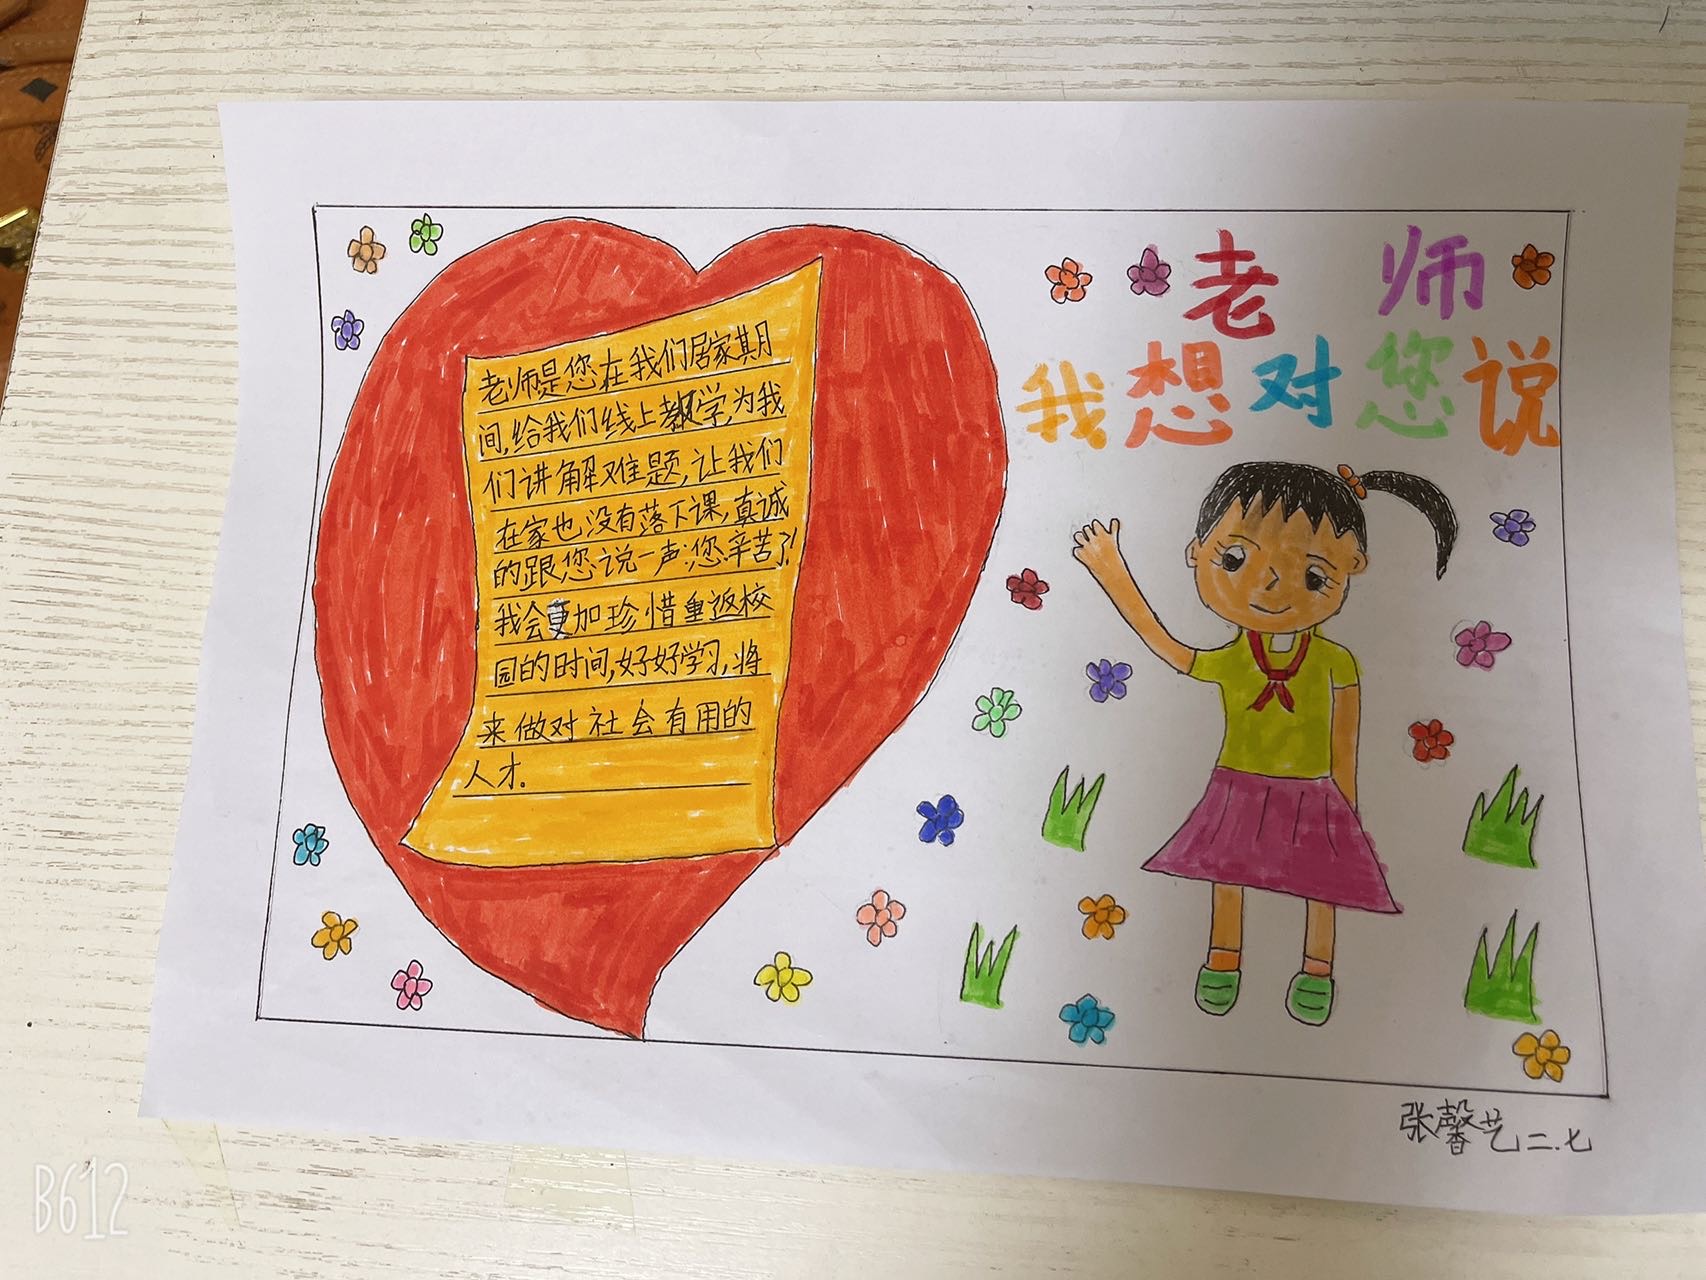 老师
我想对您说
老师是您在我们居家期
间,给我们线上教学,为我
们讲解难题,让我们
在家也没有落下课,真诚
的跟您说一声:您辛苦了!
我会更加珍惜重返校
园的时间,好好学习,将
来做对社会有用的
人才。
张馨艺二.七
B612